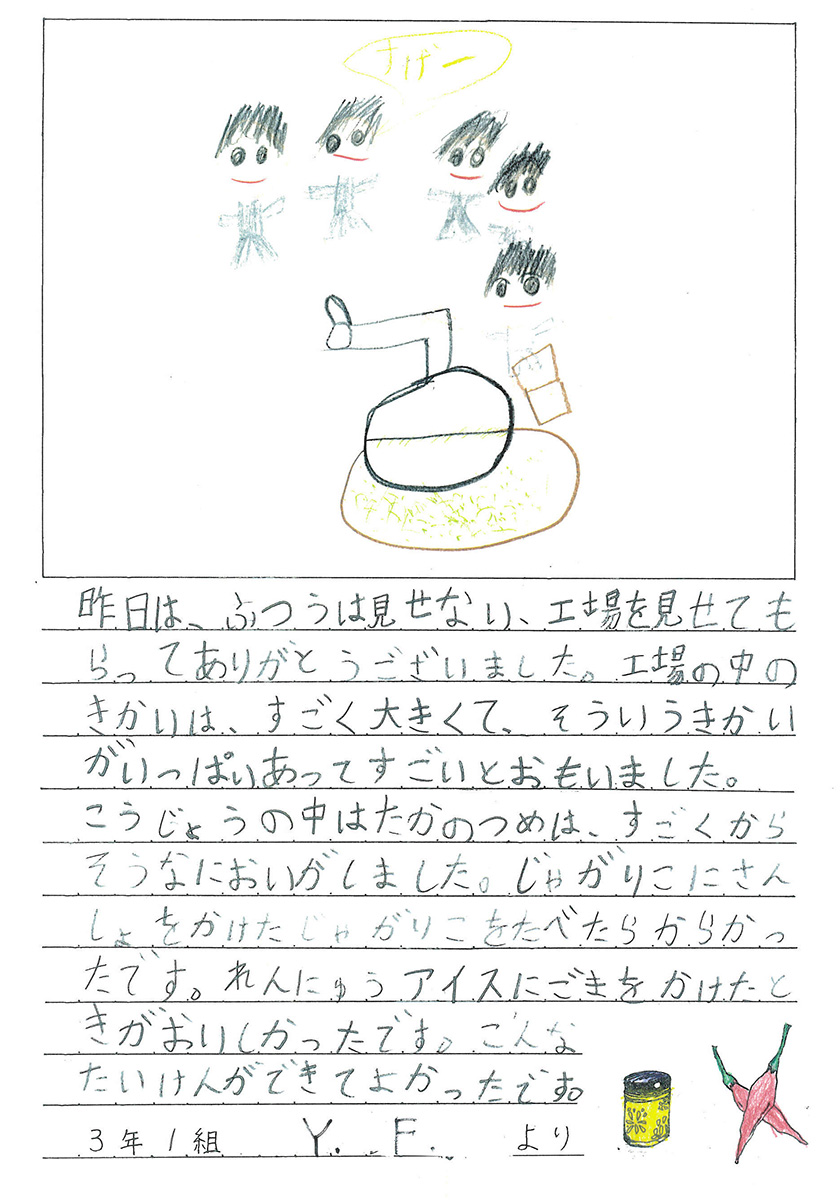 すげー
昨日は、ふつうは見せない、工場を見せても
らってありがとうございました。工場の中の
きかいは、すごく大きくて、そういうきかい
がいっぱいあってすごいとおもいました。
こうじょうの中はたかのつめは、すごくから
そうなにおいがしました。じゃがりこにさん
しょをかけたじゃがりこをたべたらからかっ
たです。れんにゅうアイスにごまをかけたと
きがおいしかったです。こんな
たいけんができてよかったです。
3年1組 Y.F. より